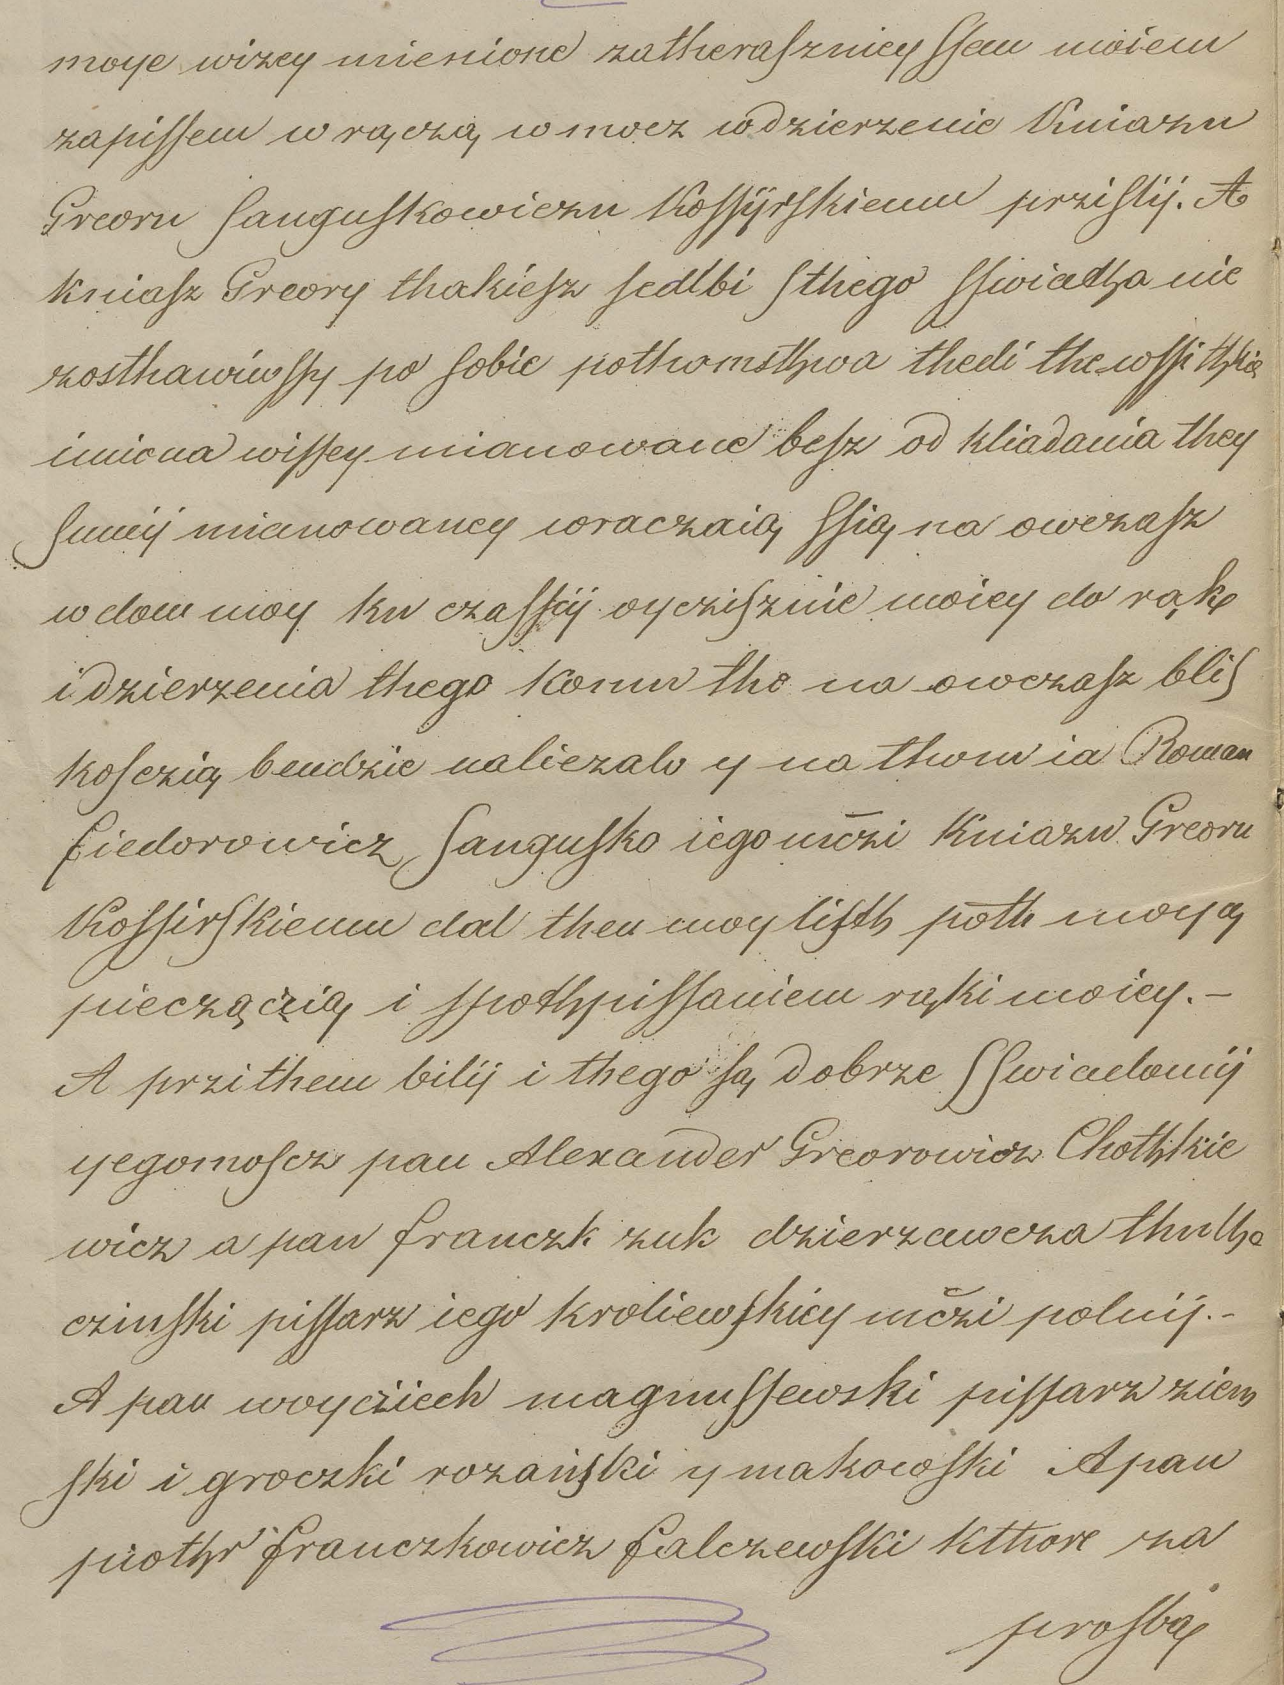 moye wizey mienione zatheraszniey ssem moiem
zapissem w rączą w mocz wdzierzenie Kniazu
Greoru Sanguskowiczu Kossÿrskiemu przislij. A
kniasz Greory thakiesz sedlbi sthego sswiatha nie
zosthawiwssy po sobie pothomsthwa thedi the wssithkie
imiona wissey mianowane besz od kliadania they
Summij mianowaney wraczaią ssią na owczasz
w dom moy ku czasscij oyczisznie moiey do rąk
i dzierzenia thego komu tho na owczasz blis
kosczią bendzie naliezalo y na thom ia Roman
fiedorowicz Sangusko iego mczi Kniazu Greoru
Kossirskiemu dal then moy listh poth moyą
pieczączią i spothpissaniem rąki moiey.–
A przithem bilij i thego są dobrze sswiadomij
yegomoscz pan Alexander Greorowicz Chothkie
wicz a pan franczk zuk dzierzawcza thulho
czinski pissarz iego kroliewskiey mczi polnij.–
A pan woyciiech magnussewski pissarz ziem
ski i groczki rozanski y makowski A pan
piothr franczkowicz falczewski kthore za
prosbą